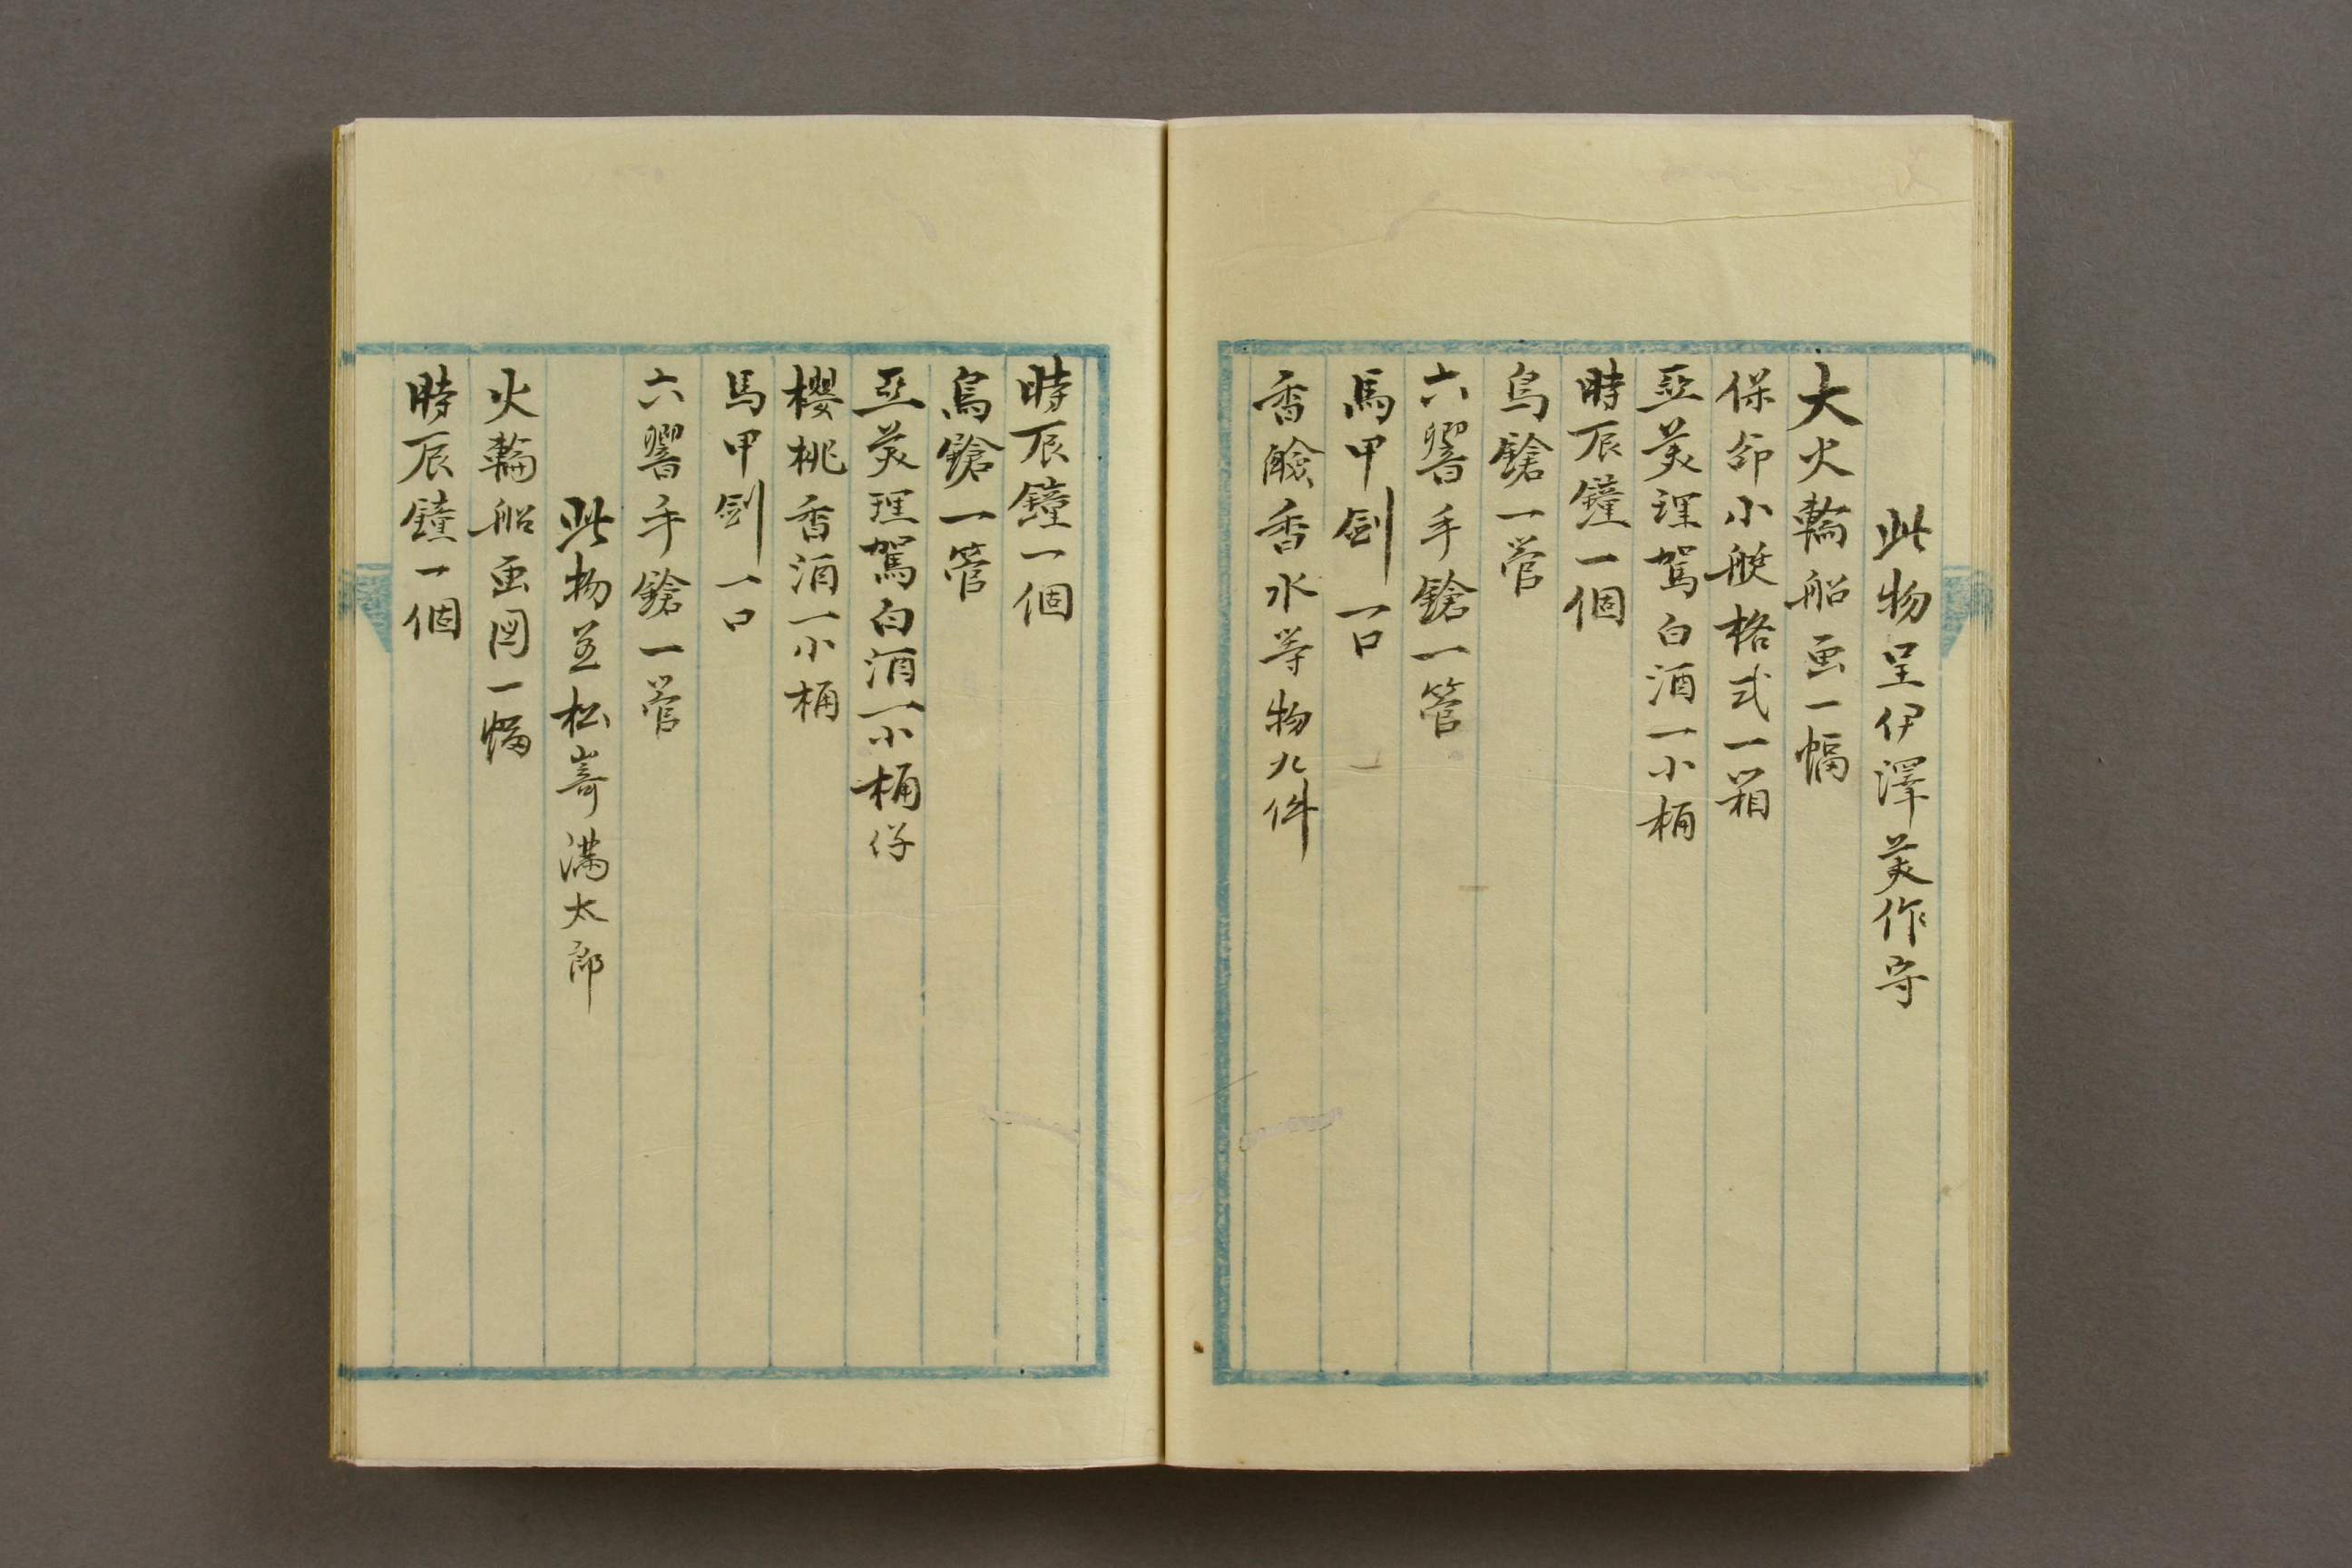 此物呈伊澤美作守
大火輪船画一幅
保命小艇格式一箱
亞美理駕白酒一小桶
時辰鐘一個
鳥鎗一管
六響手鎗一管
馬甲劍一口
香鹼香水等物九件
時辰鐘一個
鳥鎗一管
亞美理駕白酒一小桶仔
櫻桃香酒一小桶
馬甲劍一口
六響手鎗一管
此物並松嵜満太郎
火輪船画図一幅
時辰鐘一個